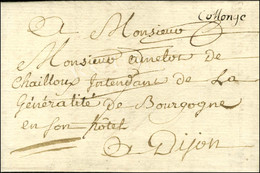 Collonge
A Monsieur
Monsieur amelot de
Chailloux Intendant de La
Généralité de Bourgogne
en son hôtel
A Dijon